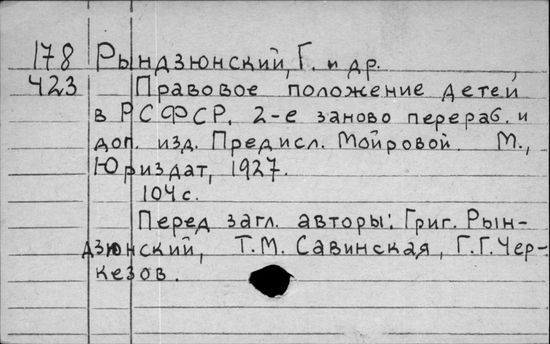 178 Рындзюнский, Г. и др.
423 Правовое положение детей
в РСФСР. 2-е заново перераб. и
доп. изд. Предисл. Мойровой М.,
Юриздат, 1927.
104 с.
Перед загл. авторы: Григ. Рын-
дзюнский, Т.М. Савинская, Г.Г. Чер-
кезов.